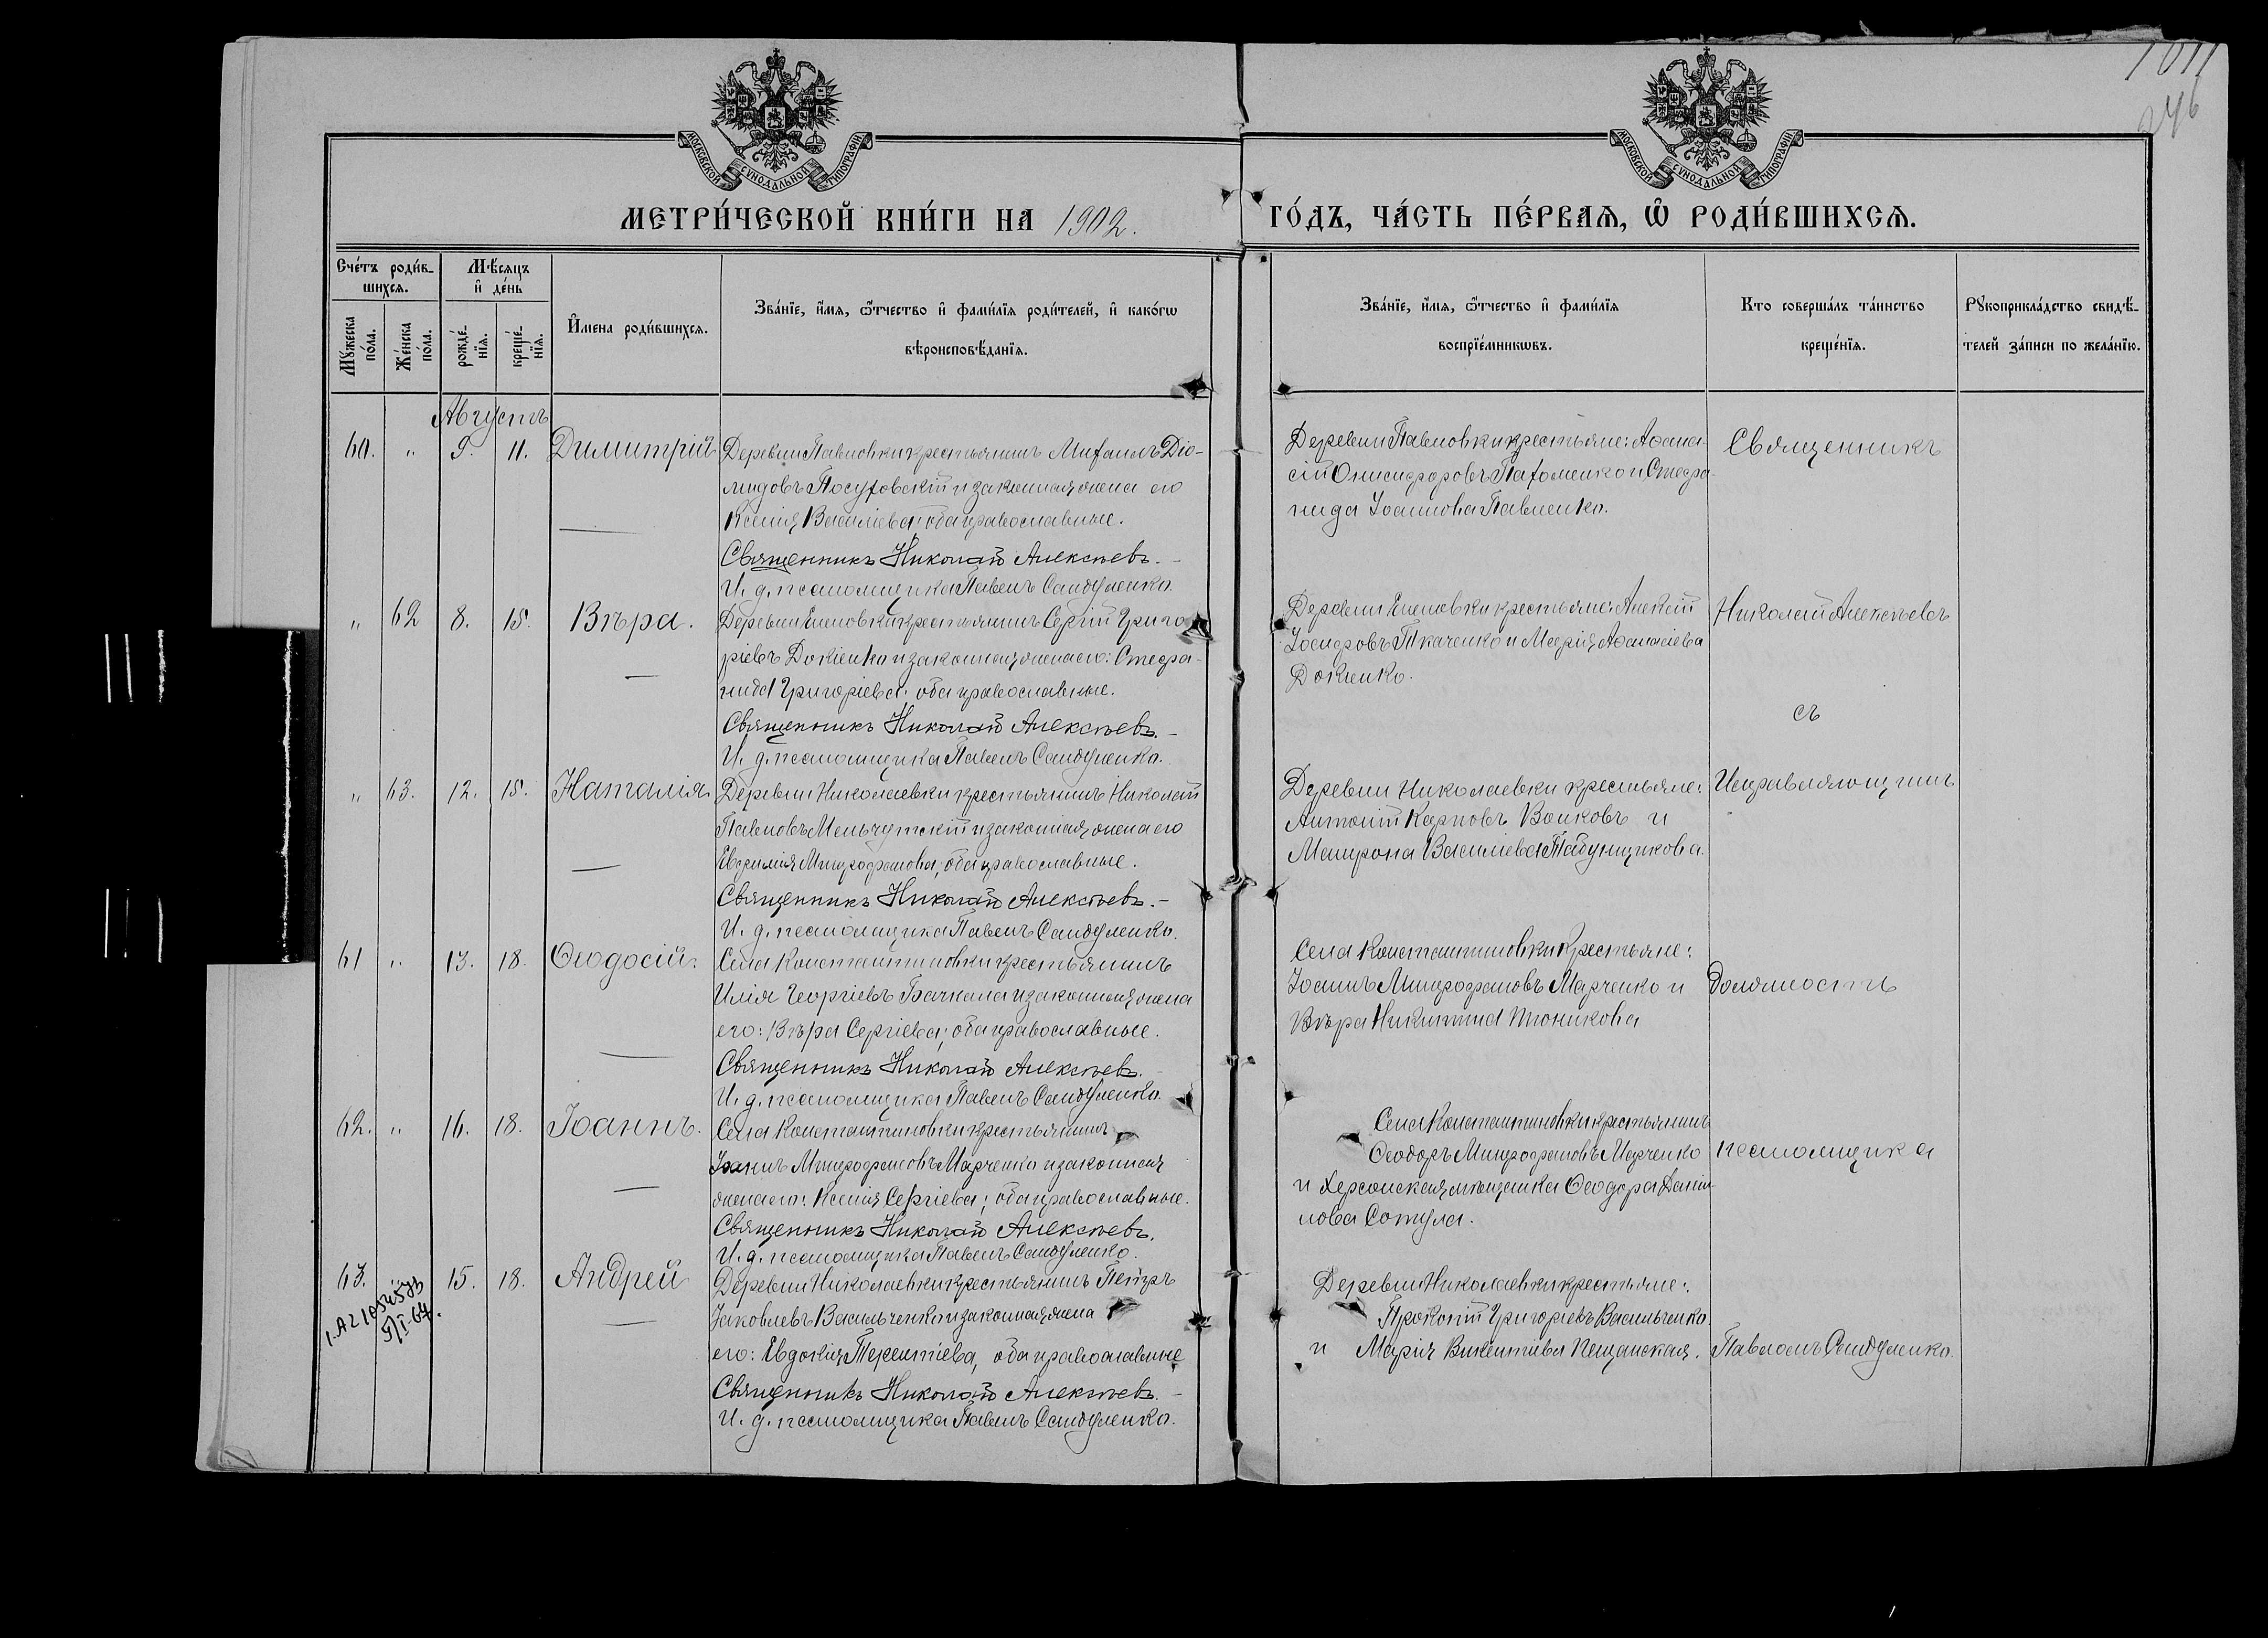 МОСКОВСКОЙ СѴНОДАЛЬНОЙ ТИПОГРАФІИ
МОСКОВСКОЙ СѴНОДАЛЬНОЙ ТИПОГРАФІИ
1011
246
МЕТРИ́ЧЕСКОЙ КНИ́ГИ НА 1902. ГО́ДЪ, ЧА́СТЬ ПЕ́РВАѦ, Ѡ҆ РОДИ́ВШИХСѦ.
Сче́тъ роди́в-
шихсѧ.
Мꙋ́жеска по́ла.
Же́нска по́ла.
Мѣ́сѧцъ
и҆ де́нь
рожде́-
нїѧ.
креще́-
нїѧ.
И҆мена роди́вшихсѧ.
Зва́нїе, и҆́мѧ, ѻ҆́тчество и҆ фами́лїѧ роди́телей, и҆ како́гѡ
вѣроисповѣ́данїѧ.
Зва́нїе, и҆́мѧ, ѻ҆́тчество и҆ фами́лїѧ
воспрїе́мникѡвъ.
Кто соверша́лъ та́инство
креще́нїѧ.
Рꙋкоприкла́дство свидѣ́-
телей за́писи по жела́нїю.
Августъ
60. " 9. 11. Димитрій
Деревни Павловки крестьянинъ Михаилъ Діо-
мидовъ Посуховскій и законная жена его
Ксенія Васильева; оба православные.
Священникъ Николай Алексѣевъ.
И. д. псаломщика Павелъ Сандуленко.
Деревни Павловки крестьяне: Аѳана-
сій Онисифоровъ Пахоменко и Стефа-
нида Іоаннова Павленко.
Священникъ
" 62 8. 15. Вѣра.
Деревни Еленовки крестьянинъ Сергій Григо-
ріевъ Докіенко и законная жена его: Стефа-
нида Григоріева; оба православные.
Священникъ Николай Алексѣевъ.
И. д. псаломщика Павелъ Сандуленко.
Деревни Еленовки крестьяне: Алексій
Іосифовъ Ткаченко и Марія Аѳанасіева
Докіенко.
Николай Алексѣевъ
съ
" 63. 12. 15. Наталія.
Деревни Николаевки крестьянинъ Николай
Павловъ и законная жена его
Евфимія Митрофанова; оба православные.
Священникъ Николай Алексѣевъ.
И. д. псаломщика Павелъ Сандуленко.
Деревни Николаевки крестьяне:
Антоній Карповъ Волковъ и
Матрона Васильева Табунщикова.
Исправляющимъ
61 " 13. 18. Ѳеодосій.
Села Константиновки крестьянинъ
Илія Георгіевъ Бачкала и законная жена
его: Вѣра Сергіева; оба православные.
Священникъ Николай Алексѣевъ.
И. д. псаломщика Павелъ Сандуленко.
Села Константиновки крестьяне:
Іоаннъ Митрофановъ Марченко и
Вѣра Никитина
должность
62. " 16. 18. Іоаннъ.
Села Константиновки крестьянинъ
Іоаннъ Митрофановъ Марченко и законная
жена его: Ксенія Сергіева; оба православные.
Священникъ Николай Алексѣевъ.
И. д. псаломщика Павелъ Сандуленко.
Села Константиновки крестьянинъ
Ѳеодоръ Митрофановъ Марченко
и Херсонская мѣщанка Ѳеодора Дани-
лова Сотула.
псаломщика
63. 15. 18. Андрей
Деревни Николаевки крестьянинъ Петръ
Іаковлевъ Васильченко и законная жена
его: Евдокія Терентіева, оба православные
Священникъ Николай Алексѣевъ.
И. д. псаломщика Павелъ Сандуленко.
Деревни Николаевки крестьяне:
Прокопій Григоріевъ Васильченко
и Марія Викентіева Пещанская.
Павломъ Сандуленко.